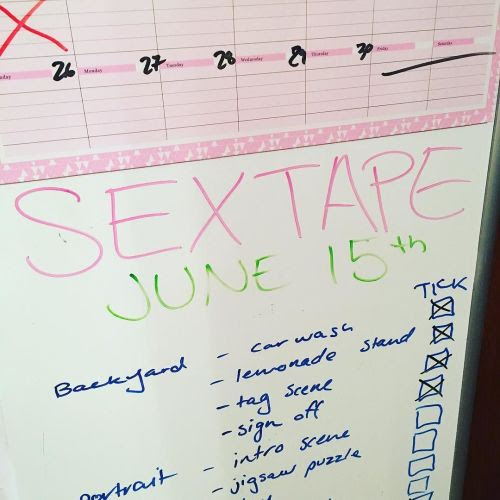 26 Monday 27 Tuesday 28 Wednesday 29 Thursday 30 Friday Saturday
SEXTAPE
JUNE 15th
TICK
Backyard - car wash
- lemonade stand
- tag scene
- sign off
Portrait - intro scene
- jigsaw puzzle